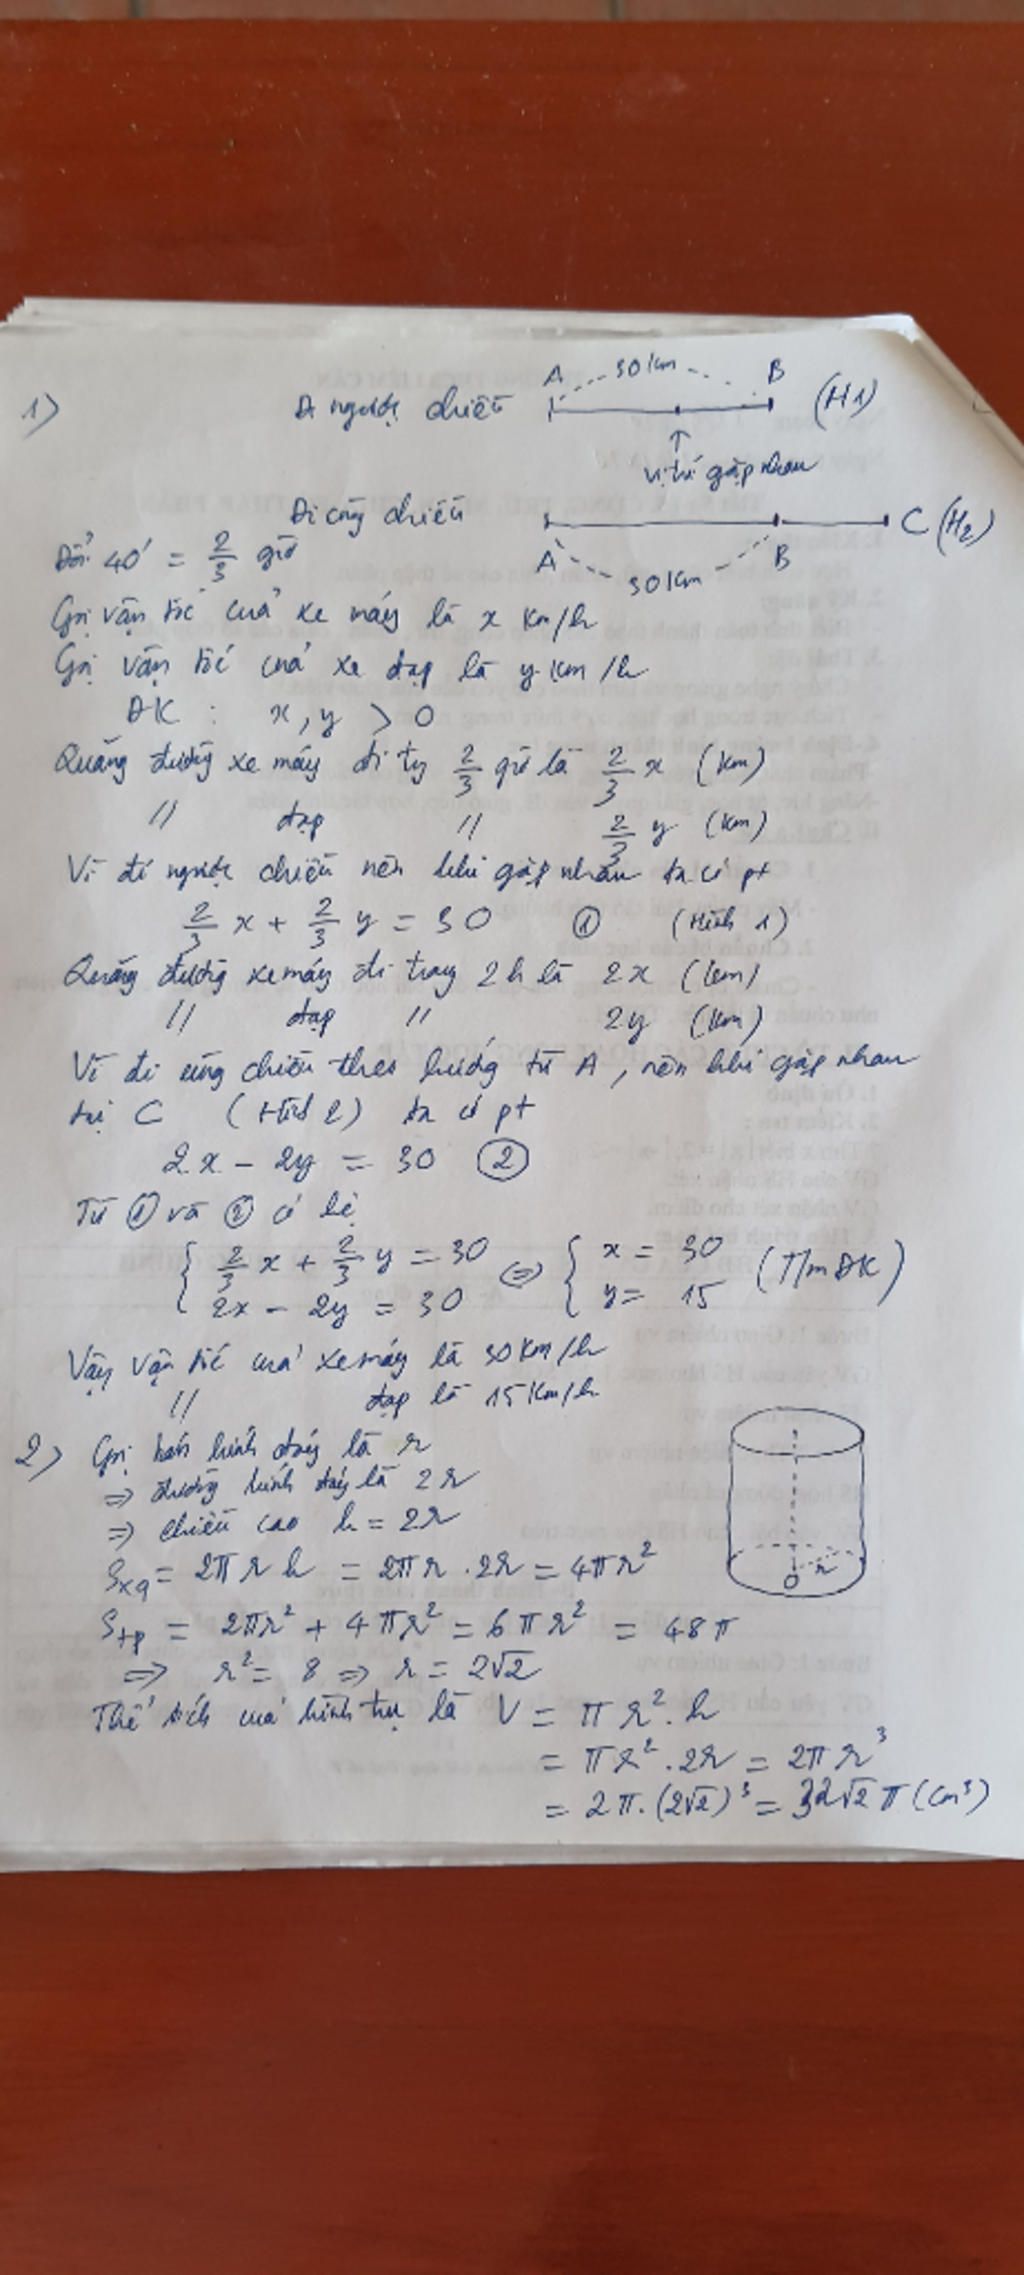 1) Đi ngược chiều A 30km B (H1)
vị trí gặp nhau
Đi cùng chiều A 30km B C (H2)
Đổi 40' = 2/3 giờ
Gọi vận tốc của xe máy là x km/h
Gọi vận tốc của xe đạp là y km/h
ĐK : x, y > 0
Quãng đường xe máy đi tg 2/3 giờ là 2/3 x (km)
// đạp // 2/3 y (km)
Vì đi ngược chiều nên khi gặp nhau ta có pt
2/3 x + 2/3 y = 30 ① (Hình 1)
Quãng đường xe máy đi trong 2h là 2x (km)
// đạp // 2y (km)
Vì đi cùng chiều theo hướng từ A, nên khi gặp nhau
tại C (Hình 2) ta có pt
2x - 2y = 30 ②
Từ ① và ② có hệ
{ 2/3 x + 2/3 y = 30 ⇔ { x = 30 (TMĐK)
2x - 2y = 30 y = 15
Vậy vận tốc của xe máy là 30 km/h
// đạp là 15 km/h
2) Gọi bán kính đáy là r
⇒ đường kính đáy là 2r
⇒ chiều cao h = 2r
Sxq = 2πrh = 2πr.2r = 4πr²
Stp = 2πr² + 4πr² = 6πr² = 48π
⇒ r² = 8 ⇒ r = 2√2
O r
Thể tích của hình trụ là V = πr².h
= πr².2r = 2πr³
= 2π.(2√2)³ = 32√2 π (cm³)